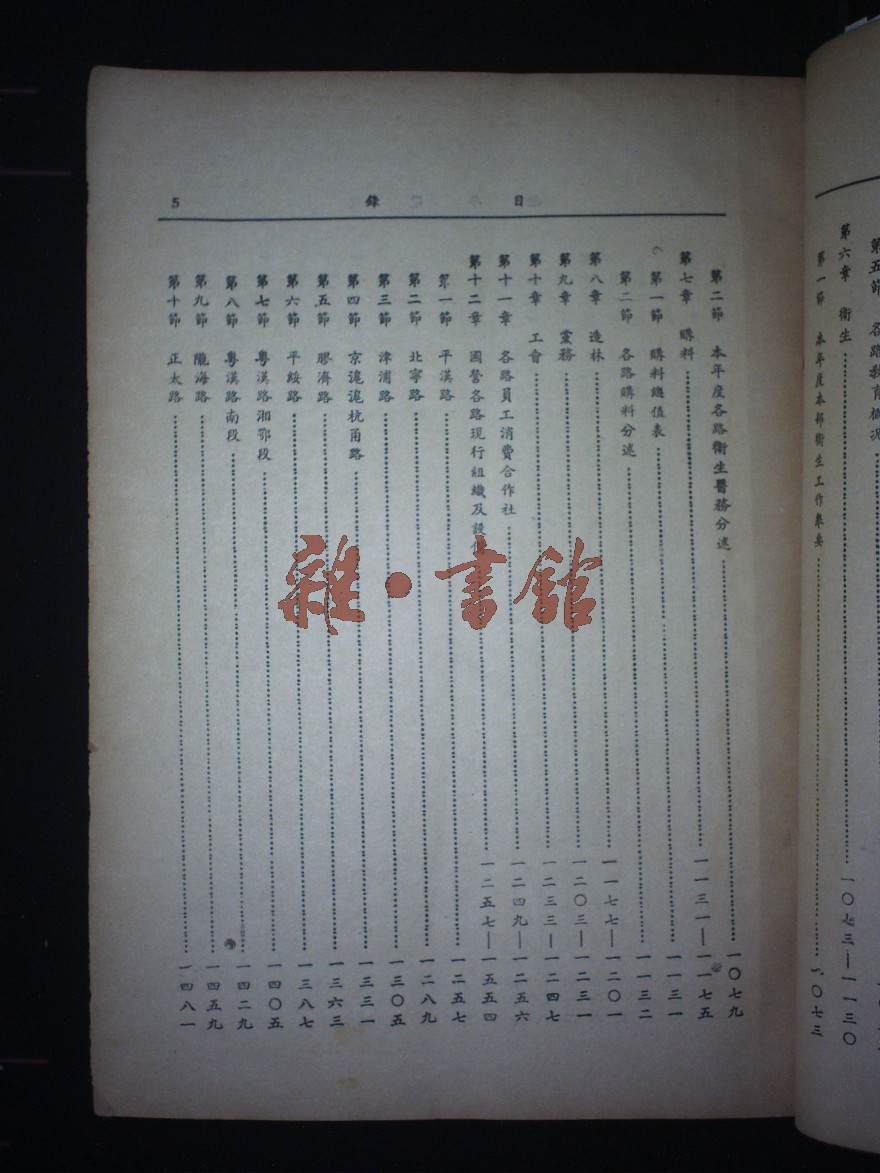 第五節 各路教育概況
第六章 衛生……一〇七三—一一三〇
第一節 本年度本部衛生工作舉要……一〇七三
目錄 5
第二節 本年度各路衛生醫務分述……一〇七九
第七章 購料……一一三一—一一七五
第一節 購料總值表……一一三一
第二節 各路購料分述……一一三二
第八章 造林……一一七七—一二〇一
第九章 黨務……一二〇三—一二三一
第十章 工會……一二三三—一二四七
第十一章 各路員工消費合作社……一二四九—一二五六
第十二章 國營各路現行組織及設備……一二五七—一五五四
第一節 平漢路……一二五七
第二節 北寧路……一二八九
第三節 津浦路……一三〇五
第四節 京滬滬杭甬路……一三三一
第五節 膠濟路……一三六三
第六節 平綏路……一三八七
第七節 粵漢路湘鄂段……一四〇五
第八節 粵漢路南段……一四二九
第九節 隴海路……一四五九
第十節 正太路……一四八一
雜·書館